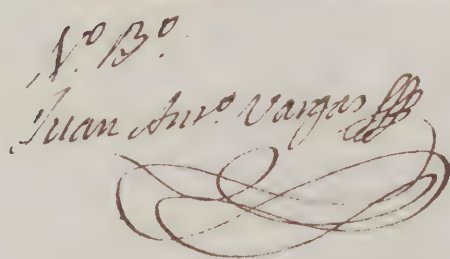 N.º B.º
Juan Ant.º Vargas